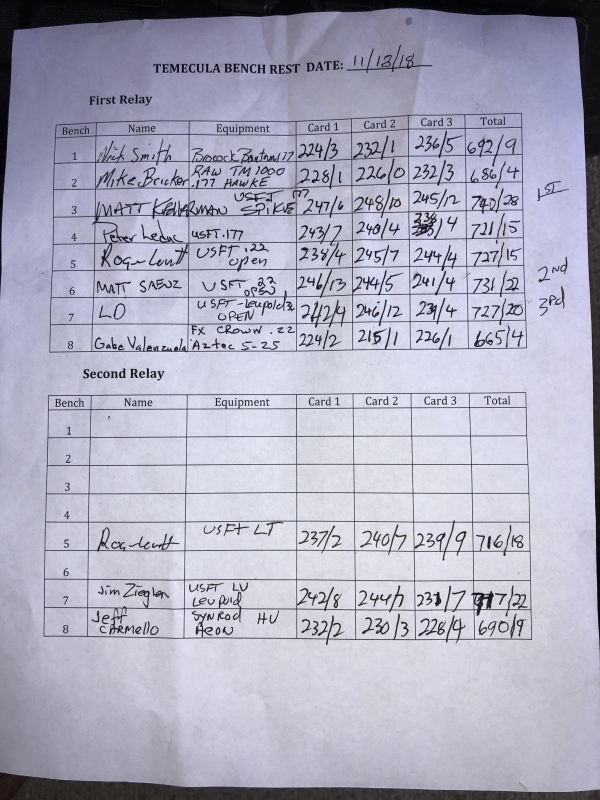 TEMECULA BENCH REST DATE: 11/18/18
First Relay
Bench Name Equipment Card 1 Card 2 Card 3 Total
1 Nick Smith Brocock Bantam 177 224/3 232/1 236/5 692/9
2 Mike Bricker RAW TM1000 .177 HAWKE 228/1 226/0 232/3 686/4
3 MATT USFT 177 SPIKE 247/6 248/10 245/12 740/28 1ST
4 Peter USFT .177 243/7 240/4 /4 721/15
5 USFT .22 Open 238/4 245/7 244/4 727/15
6 MATT SAENZ USFT .22 OPEN 246/13 244/5 241/4 731/22 2nd
7 LD USFT-Leupold OPEN 242/4 246/12 239/4 727/20 3rd
8 Gabe Valenzuela FX CROWN .22 Aztec 5-25 224/2 215/1 226/1 665/4
Second Relay
Bench Name Equipment Card 1 Card 2 Card 3 Total
1
2
3
4
5 USFT LT 237/2 240/7 239/9 716/18
6
7 Jim Ziegler USFT LV Leupold 242/8 244/7 231/7 717/22
8 Jeff CARMELLO SYNROD HV AEON 232/2 230/3 228/4 690/9